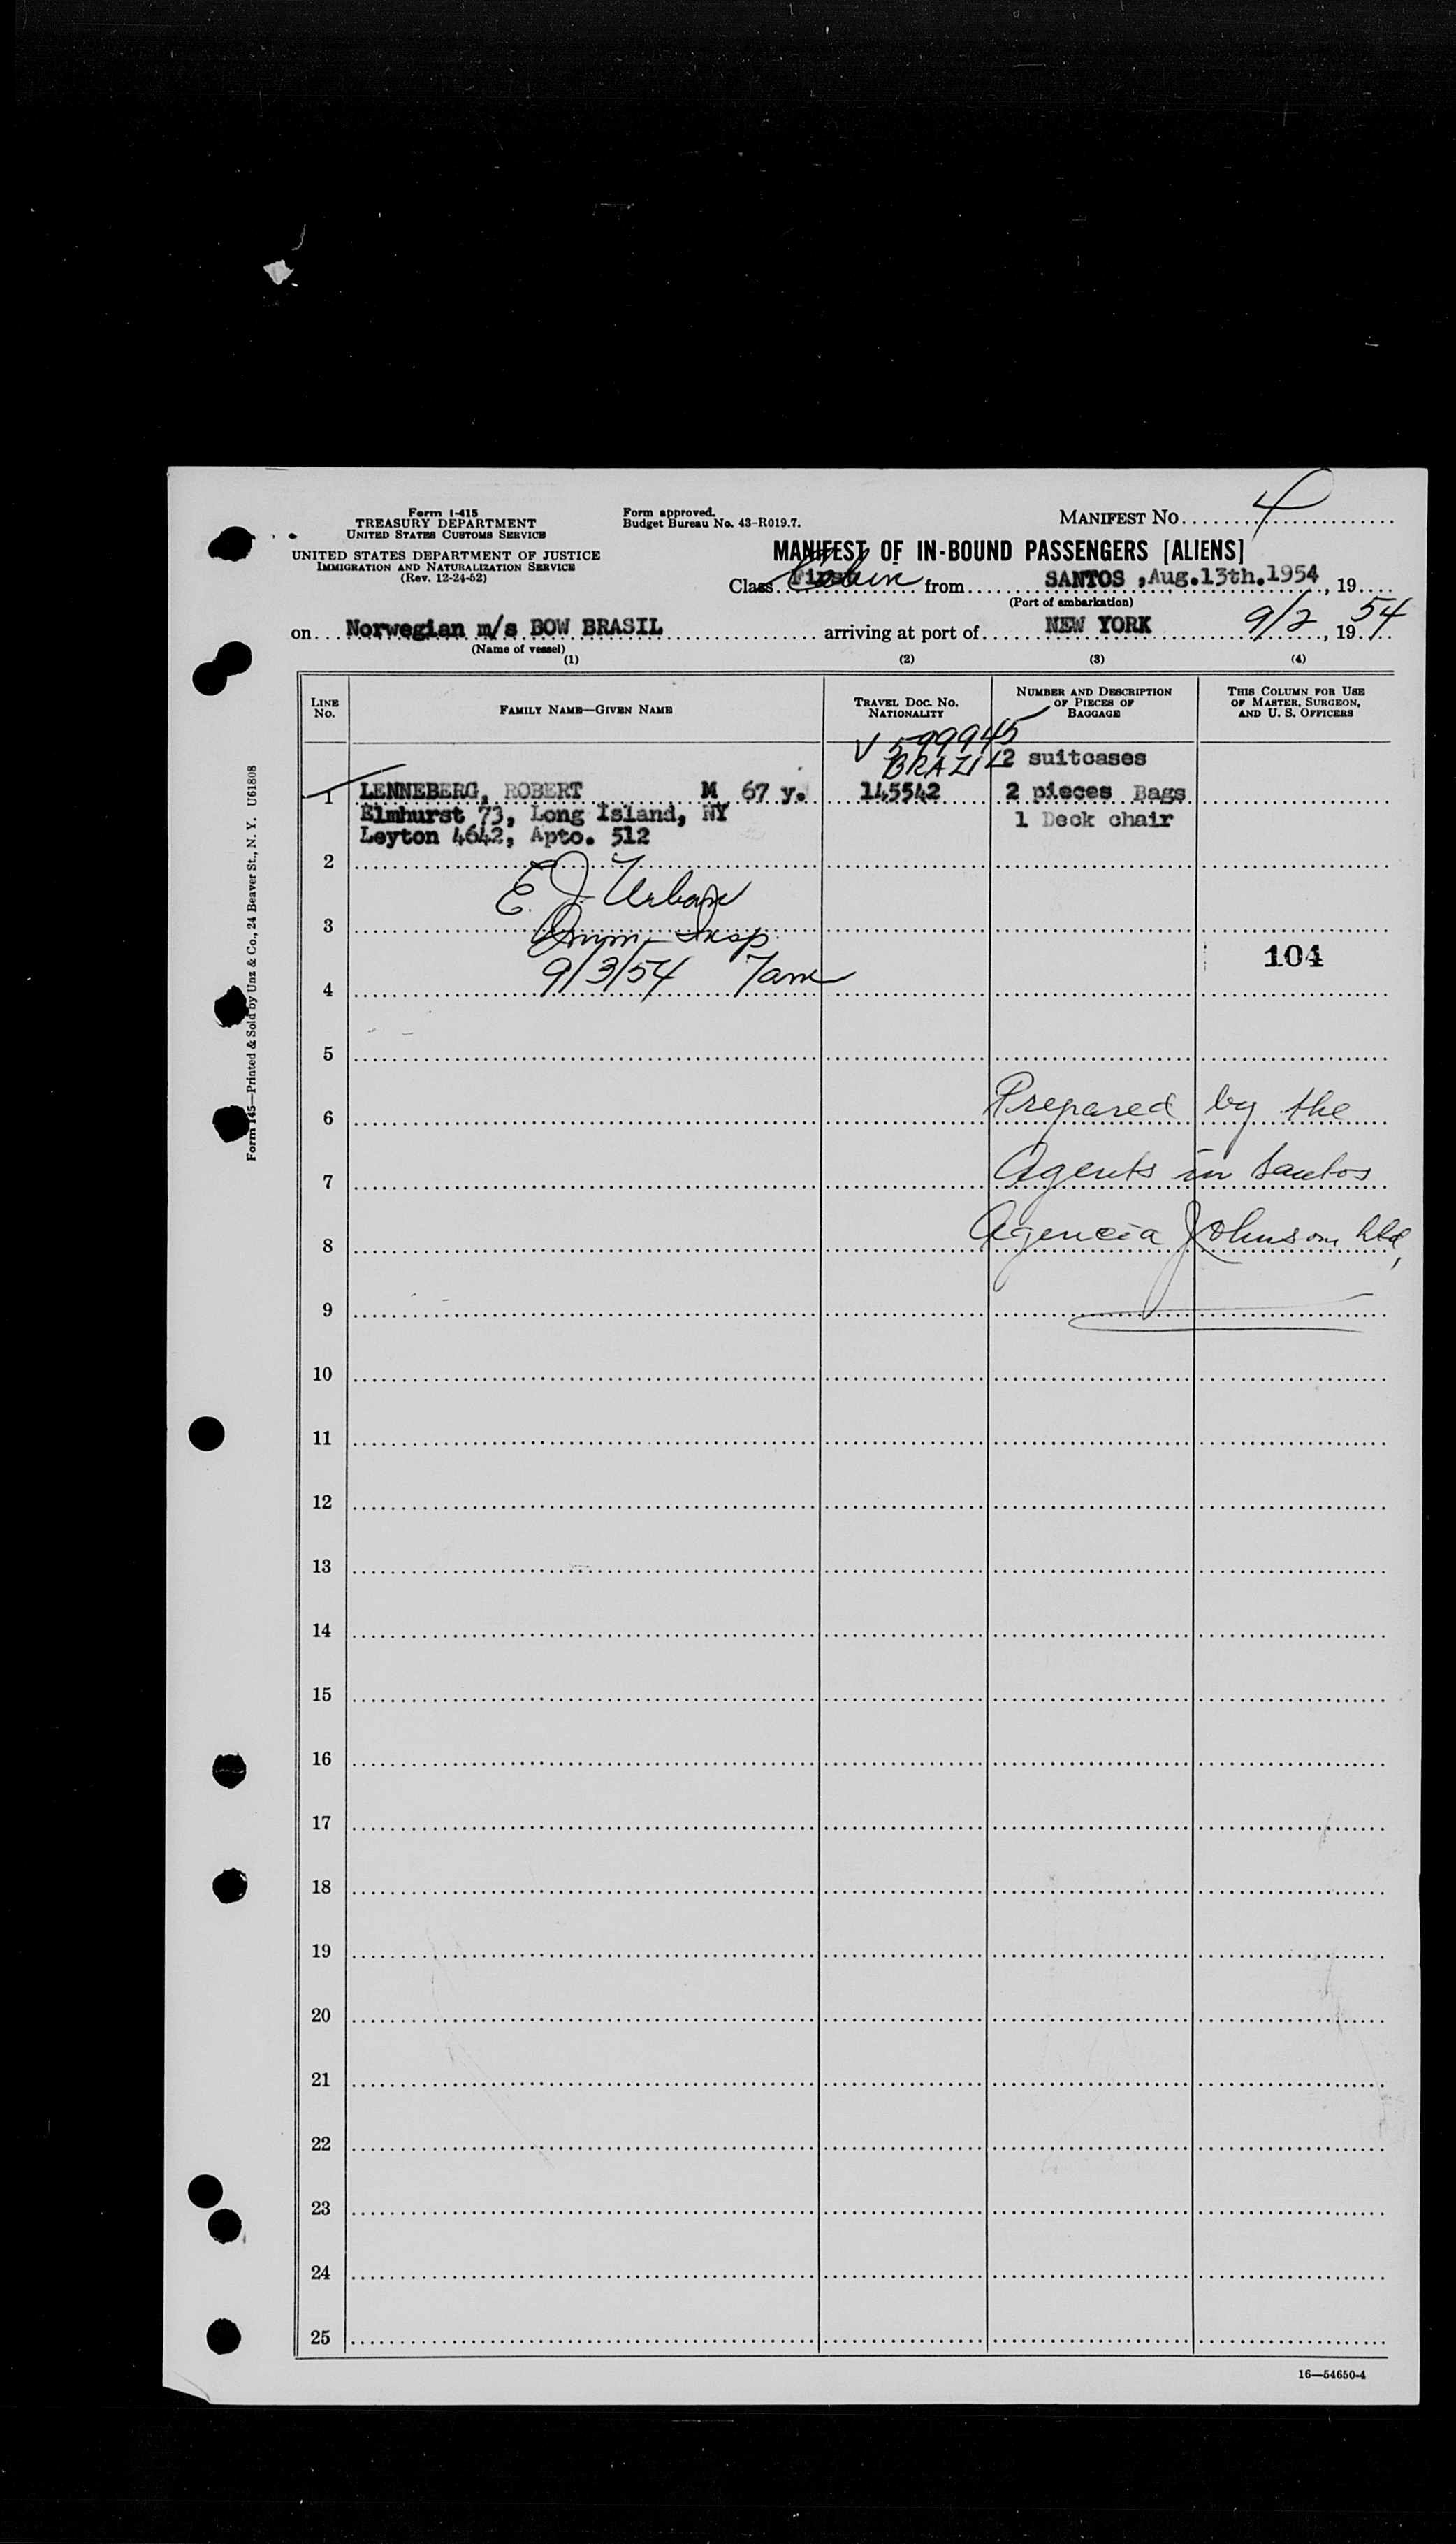 Form I-415
TREASURY DEPARTMENT
UNITED STATES CUSTOMS SERVICE
UNITED STATES DEPARTMENT OF JUSTICE
IMMIGRATION AND NATURALIZATION SERVICE
(Rev. 12-24-52)
Form approved.
Budget Bureau No. 43-R019.7.
MANIFEST NO. 4
MANIFEST OF IN-BOUND PASSENGERS [ALIENS]
Class First Cabin from SANTOS, Aug.13th.1954, 19
(Port of embarkation)
on Norwegian m/s BOW BRASIL arriving at port of NEW YORK 9/2, 1954
(Name of vessel)
(1) (2) (3) (4)
LINE No. FAMILY NAME—GIVEN NAME TRAVEL DOC. NO. NATIONALITY NUMBER AND DESCRIPTION OF PIECES OF BAGGAGE THIS COLUMN FOR USE OF MASTER, SURGEON, AND U. S. OFFICERS
V 599945
BRAZIL 2 suitcases
1 LENNEBERG, ROBERT M 67 y. 145542 2 pieces Bags
Elmhurst 73, Long Island, NY 1 Deck chair
Leyton 4642, Apto. 512
2
E. J. Urban
3
Imm. Insp
104
9/3/54 7am
4
5
Prepared by the
6
Agents in Santos
7
Agencia Johnson Ltd,
8
9
10
11
12
13
14
15
16
17
18
19
20
21
22
23
24
25
16—54650-4
Form 145—Printed & Sold by Unz & Co., 24 Beaver St., N. Y. U61808